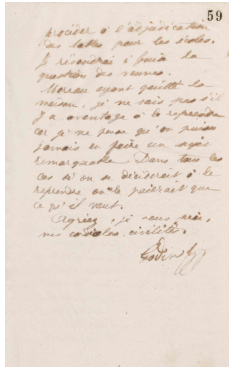 59
procéder à l'adjudication
des tables pour les écoles.
Je répondrai à fuir la
question des
Moreau ayant quitté la
maison, je ne sais pas s'il
y a avantage à le reprendre
car je ne pense qu'on puisse
jamais en faire un agent
remarquable. Dans tous les
cas si on se déciderait à le
reprendre on le paierait que
ce qu'il vaut.
Agréez, je vous prie,
mes cordiales civilités.
Godin